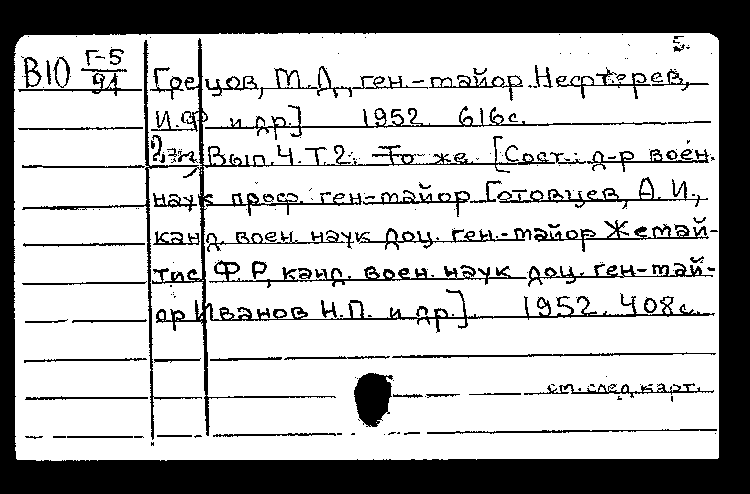 5.
В10 Г-5
91
Грецов, М.Д., ген.-майор Нефтерев,
И.Ф и др.] 1952 616с.
Вып.4. Т.2. То же [Сост.: д-р воен.
наук проф. ген-майор Готовцев, А.И.,
канд. воен. наук доц. ген.-майор Жемай-
тис Ф.Р., канд. воен. наук доц. ген-май-
ор Иванов Н.П. и др.] 1952. 408с.
см. след. карт.